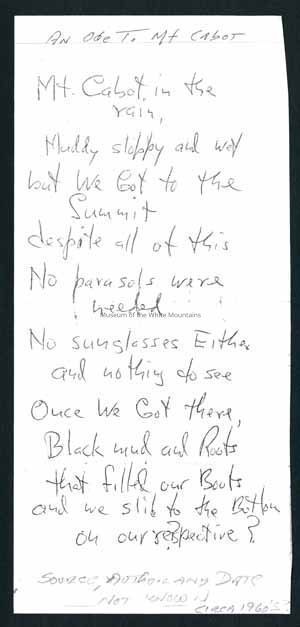 An Ode To Mt Cabot
Mt. Cabot in the
rain,
Muddy sloppy and wet
but We Got to the
Summit
despite all of this
No parasols were
needed
Museum of the White Mountains
No sunglasses Either
and nothing to see
Once We Got there,
Black mud and Roots
that filled our Boots
and we slid to the Bottom
on our respective ?
Source, Author and Date
Not Known
circa 1960's?